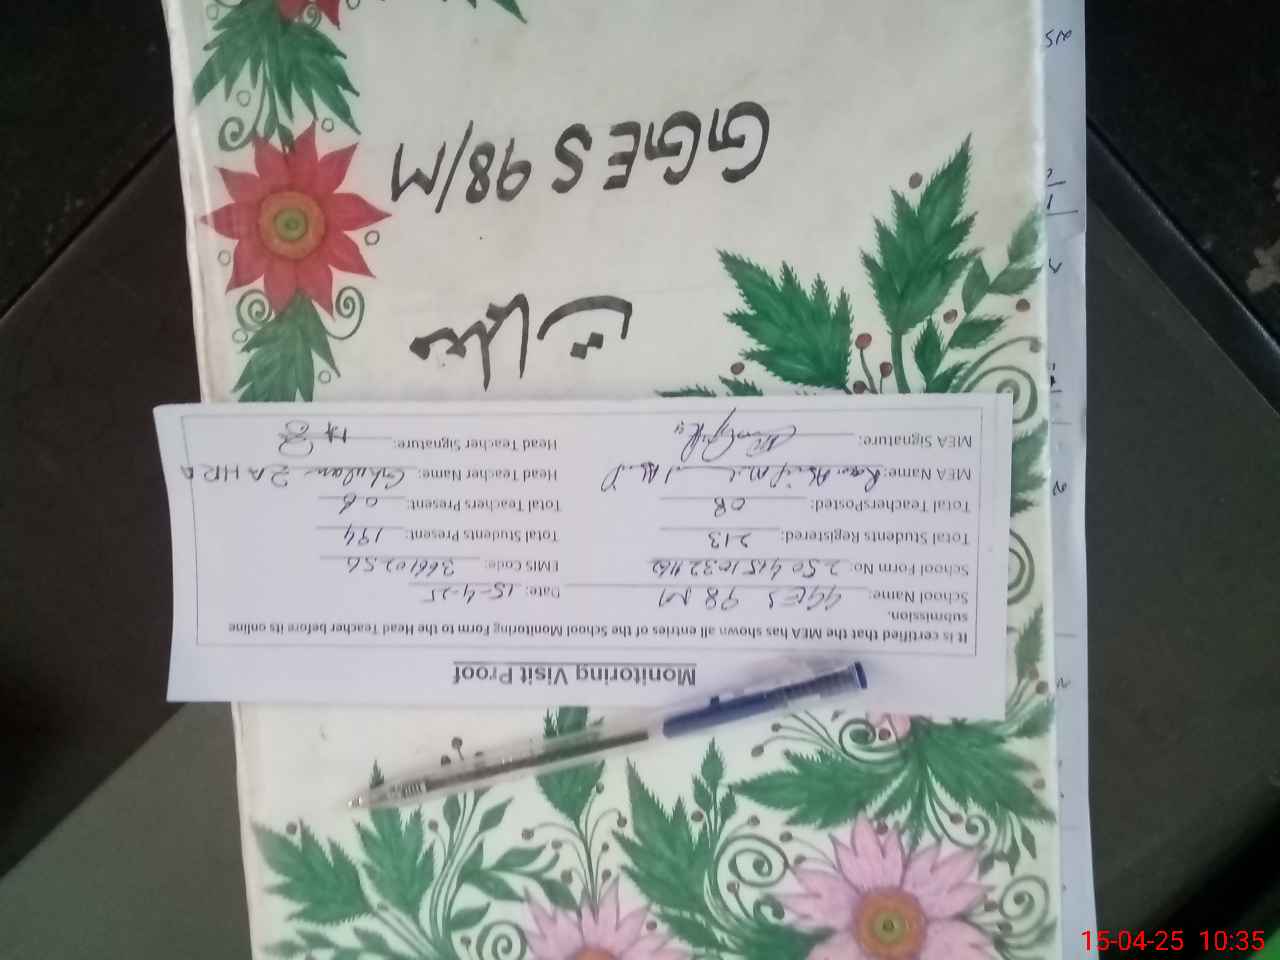 Monitoring Visit Proof
It is certified that the MEA has shown all entries of the School Monitoring Form to the Head Teacher before its online
submission.
School Name: GGES 98 M Date: 15-4-25
School Form No: EMIS Code: 36610256
Total Students Registered: 213 Total Students Present: 194
Total TeachersPosted: 08 Total Teachers Present: 08
MEA Name: Head Teacher Name: Ghulam ZAHRA
MEA Signature: Head Teacher Signature:
معلمات
GGES 98/M
15-04-25 10:35